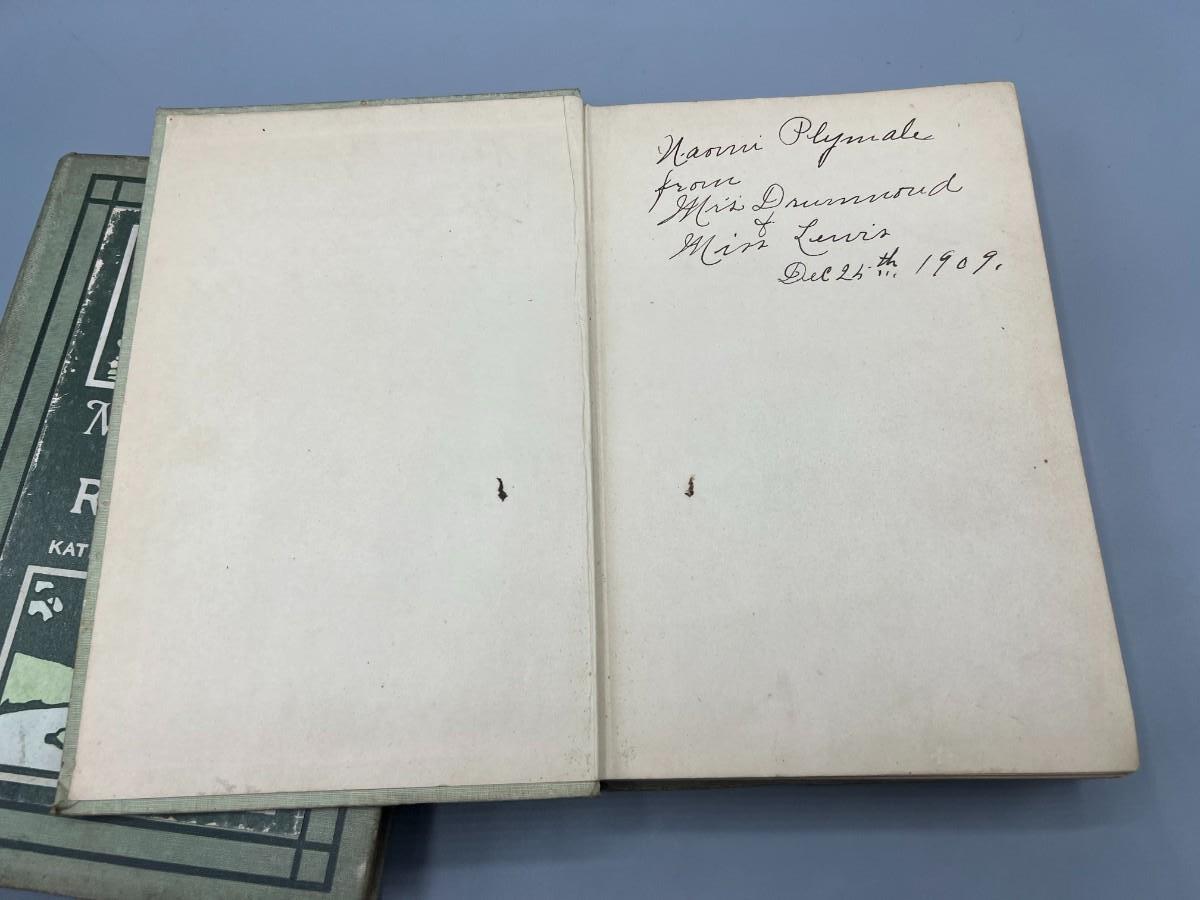 Naomi Plymale
from
Mrs Drummond
&
Miss Lewis
Dec 25th 1909.
R
KAT